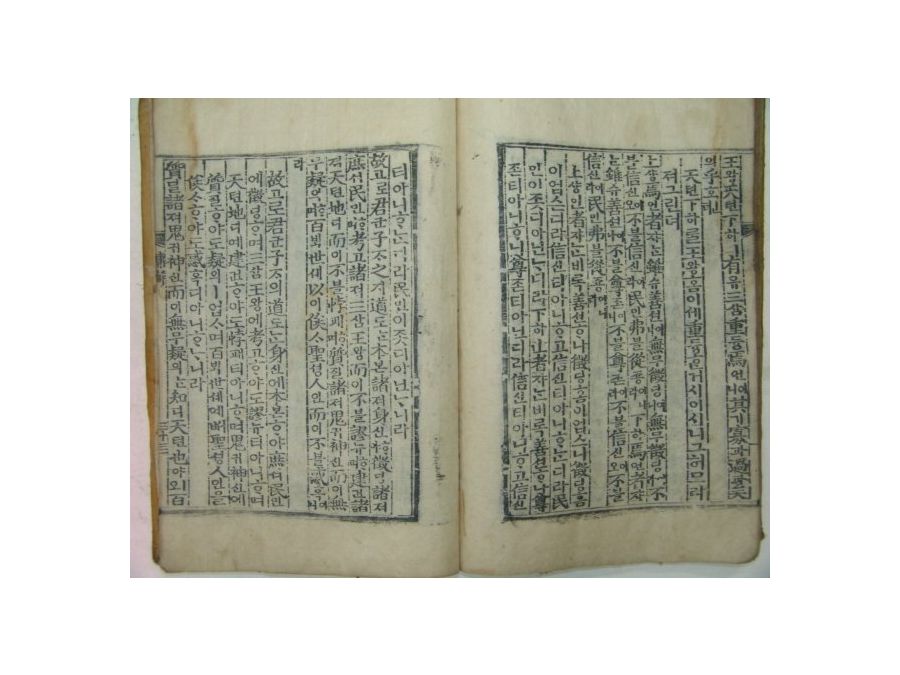 王왕天텬下하ㅣ有유三삼重듕焉언ᄒᆞ니其기寡과過과矣
의乎호ㅣᆫ뎌
天텬下하ᄅᆞᆯ王왕홈이세重듕ᄒᆞᆫ거시이시니그허므리
져그린뎌
上샹焉언者쟈ᄂᆞᆫ雖슈善션이나無무徵딩이니無무徵딩이라不불
信신이오不불信신이라民민弗불從죵이니라下하焉언者쟈ᄂᆞᆫ
雖슈善션이나不불尊존이니不불尊존이라不불信신이오不불
信신이라民민弗불從죵이니라
上샹인者쟈ᄂᆞᆫ비록善션ᄒᆞ나徵딩홈이업스니徵딩홈
이업슨디라信신티아니ᄒᆞ고信신티아니ᄒᆞᄂᆞᆫ디라民
민이좃디아닌ᄂᆞ니라下하인者쟈ᄂᆞᆫ비록善션ᄒᆞ나尊
존티아니ᄒᆞ니尊존티아닌디라信신티아니ᄒᆞ고信신
티아니ᄒᆞᄂᆞᆫ디라民민이좃디아닌ᄂᆞ니라
故고로君군子ᄌᆞ之지道도ᄂᆞᆫ本본諸져身신ᄒᆞ야徵딩諸져
庶셔民민ᄒᆞ며考고諸져三삼王왕而이不불謬뉴ᄒᆞ며建건諸
져天텬地디而이不불悖패ᄒᆞ며質질諸져鬼귀神신而이無
무疑의ᄒᆞ며百ᄇᆡᆨ世셰以이俟ᄉᆞ聖셩人인而이不불惑혹이니
라
故고로君군子ᄌᆞ의道도ᄂᆞᆫ身신에本본ᄒᆞ야庶셔民민
에徵딩ᄒᆞ며三삼王왕에考고ᄒᆞ야도謬뉴티아니ᄒᆞ며
天텬地디예建건ᄒᆞ야도悖패티아니ᄒᆞ며鬼귀神신에
質질ᄒᆞ야도疑의ㅣ업스며百ᄇᆡᆨ世셰예聖셩人인을
俟ᄉᆞᄒᆞ야도惑혹디아니ᄒᆞᄂᆞ니라
質질諸져鬼귀神신而이無무疑의ᄂᆞᆫ知디天텬也야ㅣ오百